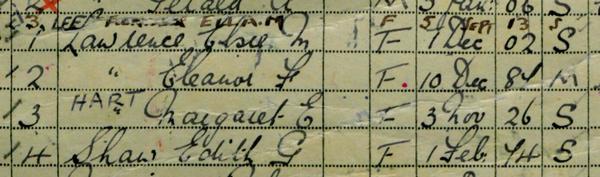 2 " Gerald A M 3 Jan 06 S
3 LEE E.W.A.M F 5 SEPT 13 S
1 Lawrence Elsie M F 1 Dec 02 S
2 " Eleanor F F 10 Dec 84 M
3 HART " Margaret E F 3 Nov 26 S
14 Shaw Edith G F 1 Feb 74 S